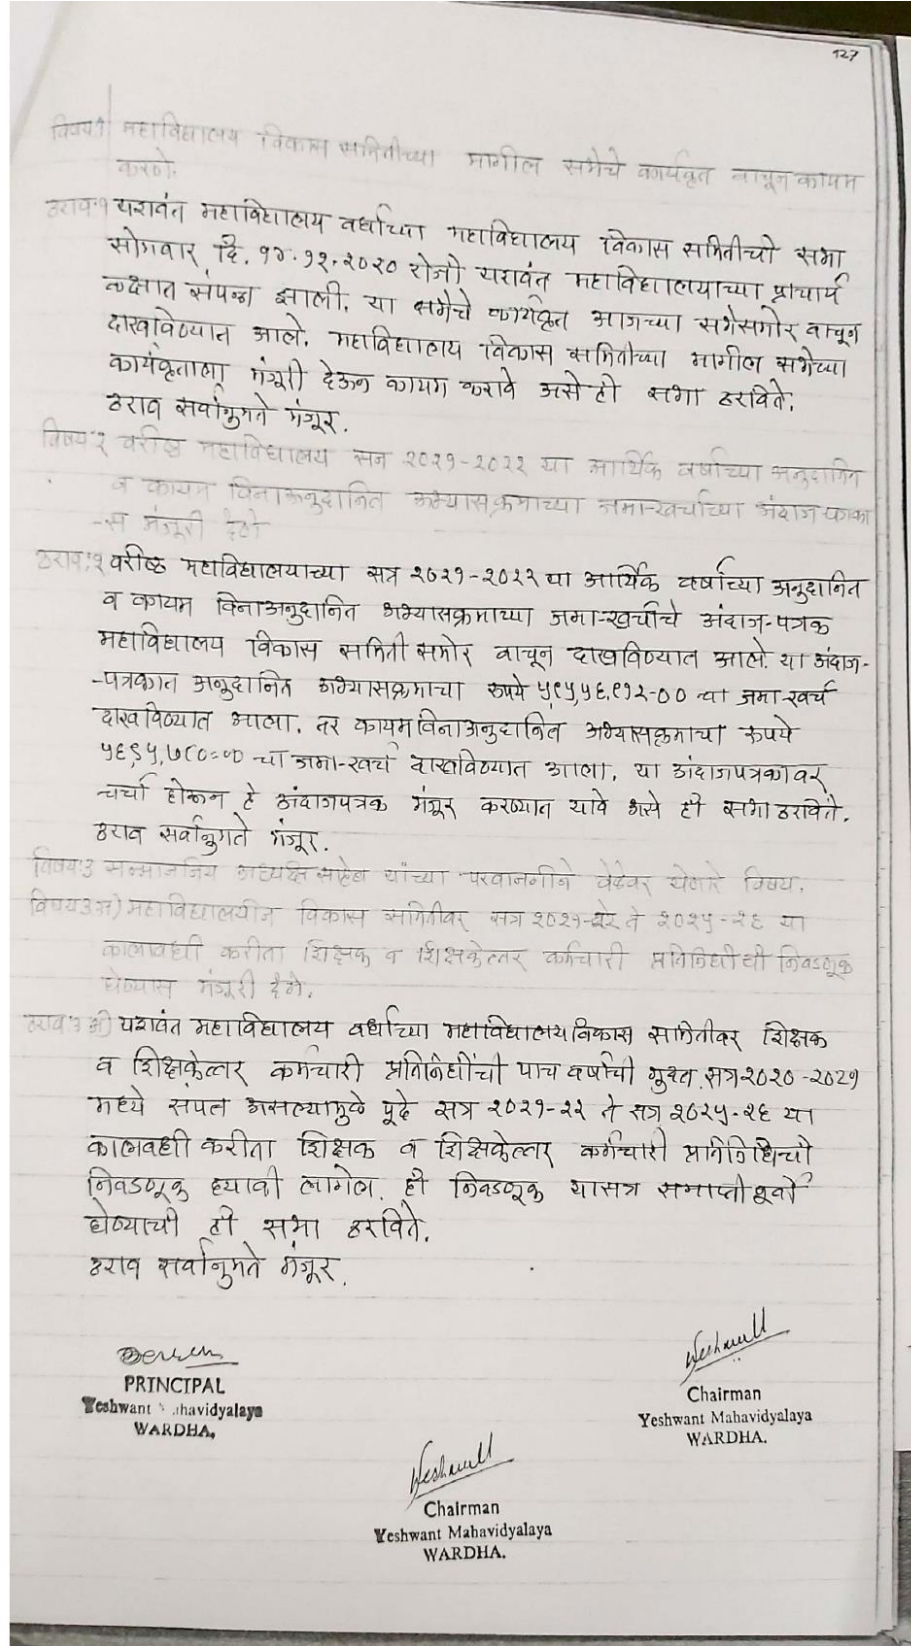 127
विषय:१ महाविद्यालय विकास समितीच्या मागील सभेचे कार्यवृत वाचून कायम
करणे.
ठराव:१ यशवंत महाविद्यालय वर्धाच्या महाविद्यालय विकास समितीची सभा
सोमवार दि. १४.१२.२०२० रोजी यशवंत महाविद्यालयाच्या प्राचार्य
कक्षात संपन्न झाली. या सभेचे कार्यवृत आजच्या सभेसमोर वाचून
दाखविण्यात आले. महाविद्यालय विकास समितीच्या मागील सभेच्या
कार्यवृताला मंजूरी देऊन कायम करावे असे ही सभा ठरविते.
ठराव सर्वानुमते मंजूर.
विषय:२ वरीष्ठ महाविद्यालय सन २०२१-२०२२ या आर्थिक वर्षाच्या अनुदानित
व कायम विनाअनुदानित अभ्यासक्रमाच्या जमा-खर्चाच्या अंदाज-पत्रका
-स मंजूरी देणे
ठराव:२ वरीष्ठ महाविद्यालयाच्या सत्र २०२१-२०२२ या आर्थिक वर्षाच्या अनुदानित
व कायम विनाअनुदानित अभ्यासक्रमाच्या जमा-खर्चाचे अंदाज-पत्रक
महाविद्यालय विकास समिती समोर वाचून दाखविण्यात आले. या अंदाज-
-पत्रकात अनुदानित अभ्यासक्रमाचा रुपये ५१५,५६,९१२-०० चा जमा-खर्च
दाखविण्यात आला. तर कायम विनाअनुदानित अभ्यासक्रमाचा रुपये
५६९५,७८०=०० चा जमा-खर्च दाखविण्यात आला. या अंदाजपत्रकावर
चर्चा होऊन हे अंदाजपत्रक मंजूर करण्यात यावे असे ही सभा ठरविते.
ठराव सर्वानुमते मंजूर.
विषय:३ सन्माननिय अध्यक्ष साहेब यांच्या परवानगीने वेळेवर येणारे विषय.
विषय३अ) महाविद्यालयीन विकास समितीवर सत्र २०२१-२२ ते २०२५-२६ या
कालावधी करीता शिक्षक व शिक्षकेत्तर कर्मचारी प्रतिनिधीची निवडणूक
घेण्यास मंजूरी देणे.
ठराव:३ अ) यशवंत महाविद्यालय वर्धाच्या महाविद्यालय विकास समितीवर शिक्षक
व शिक्षकेत्तर कर्मचारी प्रतिनिधींची पाच वर्षाची मुदत सत्र २०२०-२०२१
मध्ये संपत असल्यामुळे पूढे सत्र २०२१-२२ ते सत्र २०२५-२६ या
कालावधी करीता शिक्षक व शिक्षकेत्तर कर्मचारी प्रतिनिधिची
निवडणूक घ्यावी लागेल. ही निवडणूक यासत्र समाप्ती पूर्वी
घेण्याची ही सभा ठरविते.
ठराव सर्वानुमते मंजूर.
PRINCIPAL
Yeshwant Mahavidyalaya
WARDHA.
Chairman
Yeshwant Mahavidyalaya
WARDHA.
Chairman
Yeshwant Mahavidyalaya
WARDHA.